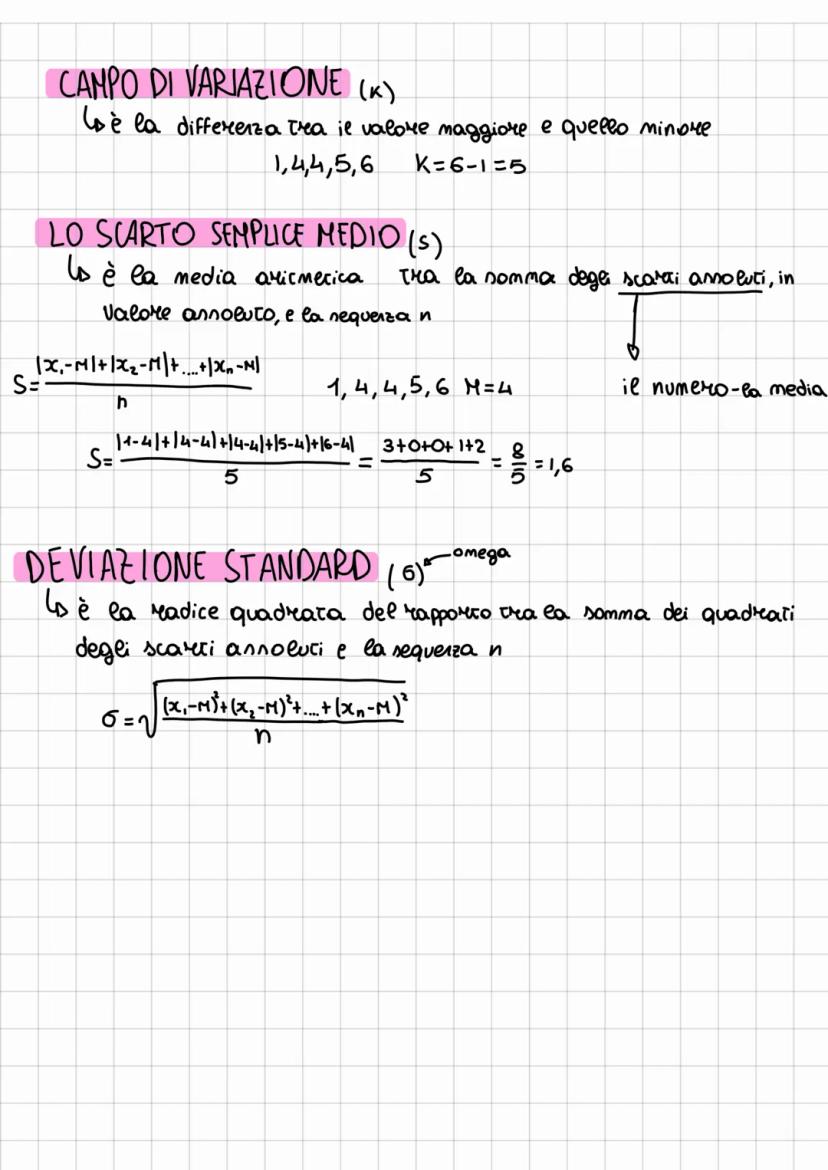 CAMPO DI VARIAZIONE (K)
↳ è la differenza tra il valore maggiore e quello minore
1,4,4,5,6 K=6-1=5
LO SCARTO SEMPLICE MEDIO (S)
↳ è la media aritmetica tra la somma degli scarti assoluti, in
valore assoluto, e la sequenza n
S= |x₁-M|+|x₂-M|+....+|xₙ-M| / n 1, 4, 4, 5, 6 M=4 il numero-la media
S= |1-4|+|4-4|+|4-4|+|5-4|+|6-4| / 5 = 3+0+0+1+2 / 5 = 8/5 = 1,6
DEVIAZIONE STANDARD (σ) ← omega
↳ è la radice quadrata del rapporto tra la somma dei quadrati
degli scarti assoluti e la sequenza n
σ = √ (x₁-M)²+(x₂-M)²+....+(xₙ-M)² / n